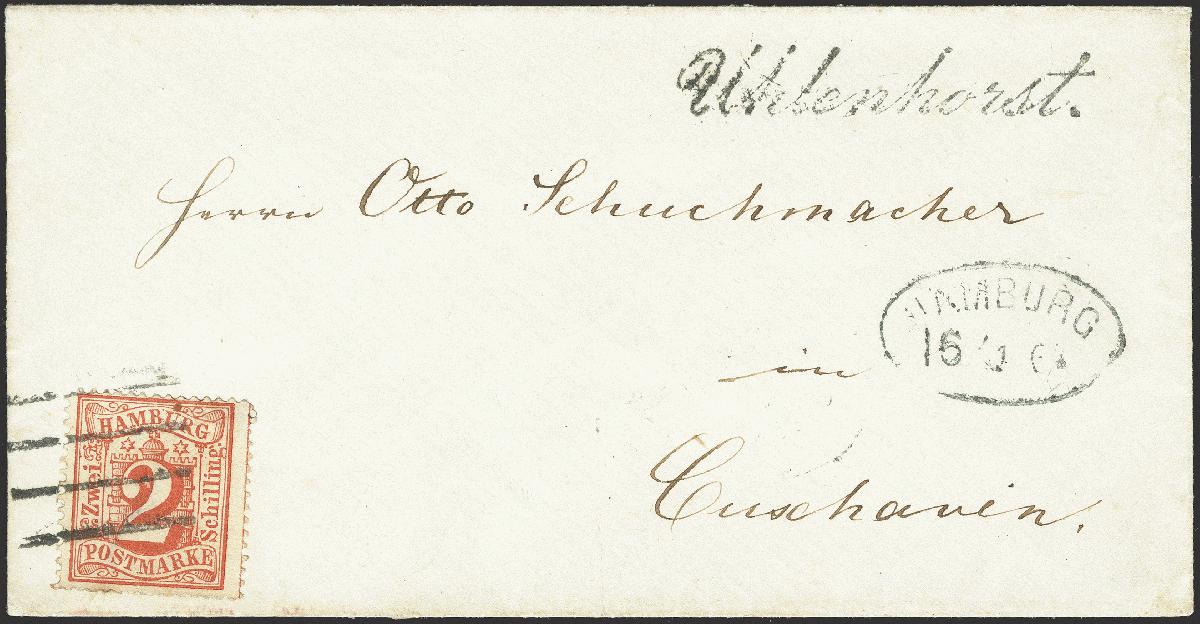 Uhlenhorst.
Herrn Otto Schuchmacher
HAMBURG
16
in
Cuxhaven.
HAMBURG
Zwei
2
Schilling
POSTMARKE